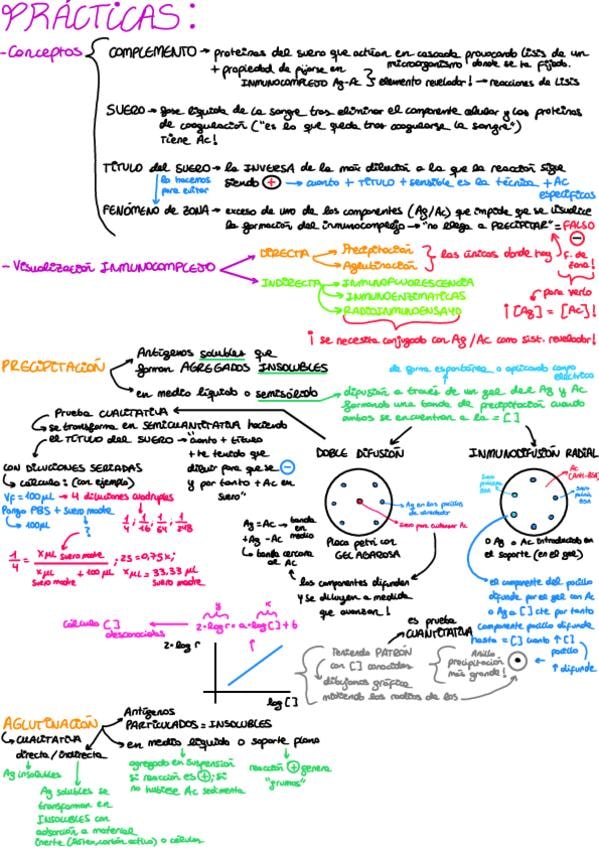 PRÁCTICAS:
- Conceptos
COMPLEMENTO → proteínas del suero que actúan en cascada provocando lisis de un
microorganismo donde se ha fijado.
+ propiedad de fijarse en
INMUNOCOMPLEJO Ag-Ac } elemento revelador! → reacciones de lisis
SUERO → fase líquida de la sangre tras eliminar el componente celular y las proteínas
de coagulación ("es lo que queda tras coagularse la sangre")
Tiene Ac!
TÍTULO del SUERO → la INVERSA de la más dilución a la que la reacción sigue
siendo + → cuanto + TÍTULO + sensible es la técnica + Ac
específicos
lo hacemos
para evitar
FENÓMENO de ZONA → exceso de uno de los componentes (Ag/Ac) que impide que se visualice
la formación del inmunocomplejo → "no llega a PRECIPITAR" = FALSO
-
f. de
zona!
- Visualización INMUNOCOMPLEJO
DIRECTA
Precipitación
Aglutinación
} las únicas donde hay
INDIRECTA
INMUNOFLUORESCENCIA
INMUNOENZIMÁTICAS
RADIOINMUNOENSAYO
para verlo
¡ [Ag] = [Ac]!
¡ se necesita conjugado con Ag/Ac como sist. revelador!
PRECIPITACIÓN
Antígenos solubles que
forman AGREGADOS INSOLUBLES
en medio líquido o semisólido
de forma espontánea o aplicando campo
eléctrico
difusión a través de un gel del Ag y Ac
formando una banda de precipitación cuando
ambos se encuentran a la = [ ]
Prueba CUALITATIVA
se transforma en SEMICUANTITATIVA haciendo
el TÍTULO del SUERO → "cuanto + título
+ he tenido que
diluir para que sea -
y por tanto + Ac en
suero"
CON DILUCIONES SERIADAS
cálculo: (con ejemplo)
VF = 100 μL → 4 diluciones cuádruples
Pongo PBS + suero madre
100 μL
?
1/4 ; 1/16 ; 1/64 ;
1/4 = xμL suero madre / xμL + 100 μL
suero madre
; 25 = 0,75x;
x = 33,33 μL
suero madre
DOBLE DIFUSIÓN
Ag en los pocillos
de alrededor
Placa petri con
GEL AGAROSA
Ag = Ac → banda en
medio
+ Ag - Ac
banda cercana
al Ac
los componentes difunden
y se diluyen a medida
que avanzan!
INMUNODIFUSIÓN RADIAL
Ac
(Anti-BSA)
BSA
o Ag o Ac introducido en
el soporte (en el gel)
el componente del pocillo
difunde por el gel con Ac
o Ag a [ ] cte por tanto
componente pocillo difunde
hasta = [ ] cuanto ↑ [ ]
pocillo
↑ difunde
es prueba
CUANTITATIVA
Teniendo PATRÓN
con [ ] conocidas
dibujamos gráfica
midiendo los radios de los
Anillo
precipitación
más grande!
cálculo [ ]
desconocidas
y
x
2·log r = a·log [ ] + b
2·log r
log [ ]
AGLUTINACIÓN
CUALITATIVA
directa/indirecta
Antígenos
PARTICULADOS = INSOLUBLES
en medio líquido o soporte plano
Ag insolubles
Ag solubles se
transforman en
INSOLUBLES con
adsorción a material
inerte (látex, carbón activo) o células
agregado en suspensión
si reacción es +; si
no hubiese Ac sedimenta
reacción + genera
"grumos"